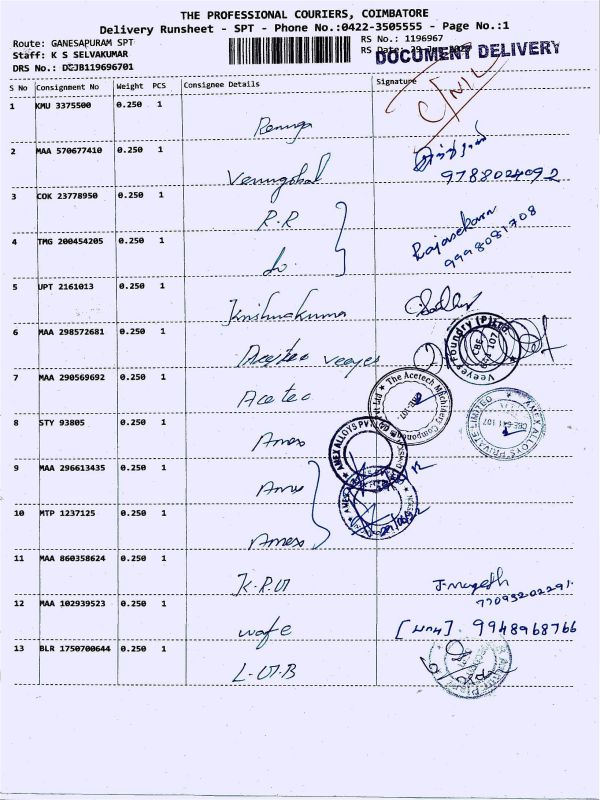 THE PROFESSIONAL COURIERS, COIMBATORE
Delivery Runsheet - SPT - Phone No.:0422-3505555 - Page No.:1
Route: GANESAPURAM SPT
RS No.: 1196967
Staff: K S SELVAKUMAR
RS Date:
DOCUMENT DELIVERY
DRS No.:
S No Consignment No Weight PCS Consignee Details Signature
C/NIL
1 KMU 3375500 0.250 1
Renuga
2 MAA 570677410 0.250 1
Venugobal 9788024092
3 COK 23778950 0.250 1
R.R
Rajasekaran
9998081708
4 TMG 200454205 0.250 1
do
5 UPT 2161013 0.250 1
Krishnakumar
6 MAA 298572681 0.250 1
Acetec veeyes
Veeyes Foundry (P) Ltd
CBE
641 107
7 MAA 290569692 0.250 1
Acetec
The Acetech Machinery Components
Pvt Ltd
8 STY 93805 0.250 1
Amex
AMEX ALLOYS PVT LTD
AMEX ALLOYS PRIVATE LIMITED
CBE-641 107
9 MAA 296613435 0.250 1
Amex
10 MTP 1237125 0.250 1
Amex
11 MAA 860358624 0.250 1
K.R.U J. mugesh
12 MAA 102939523 0.250 1
wafe 9948968766
13 BLR 1750700644 0.250 1
L.U.B